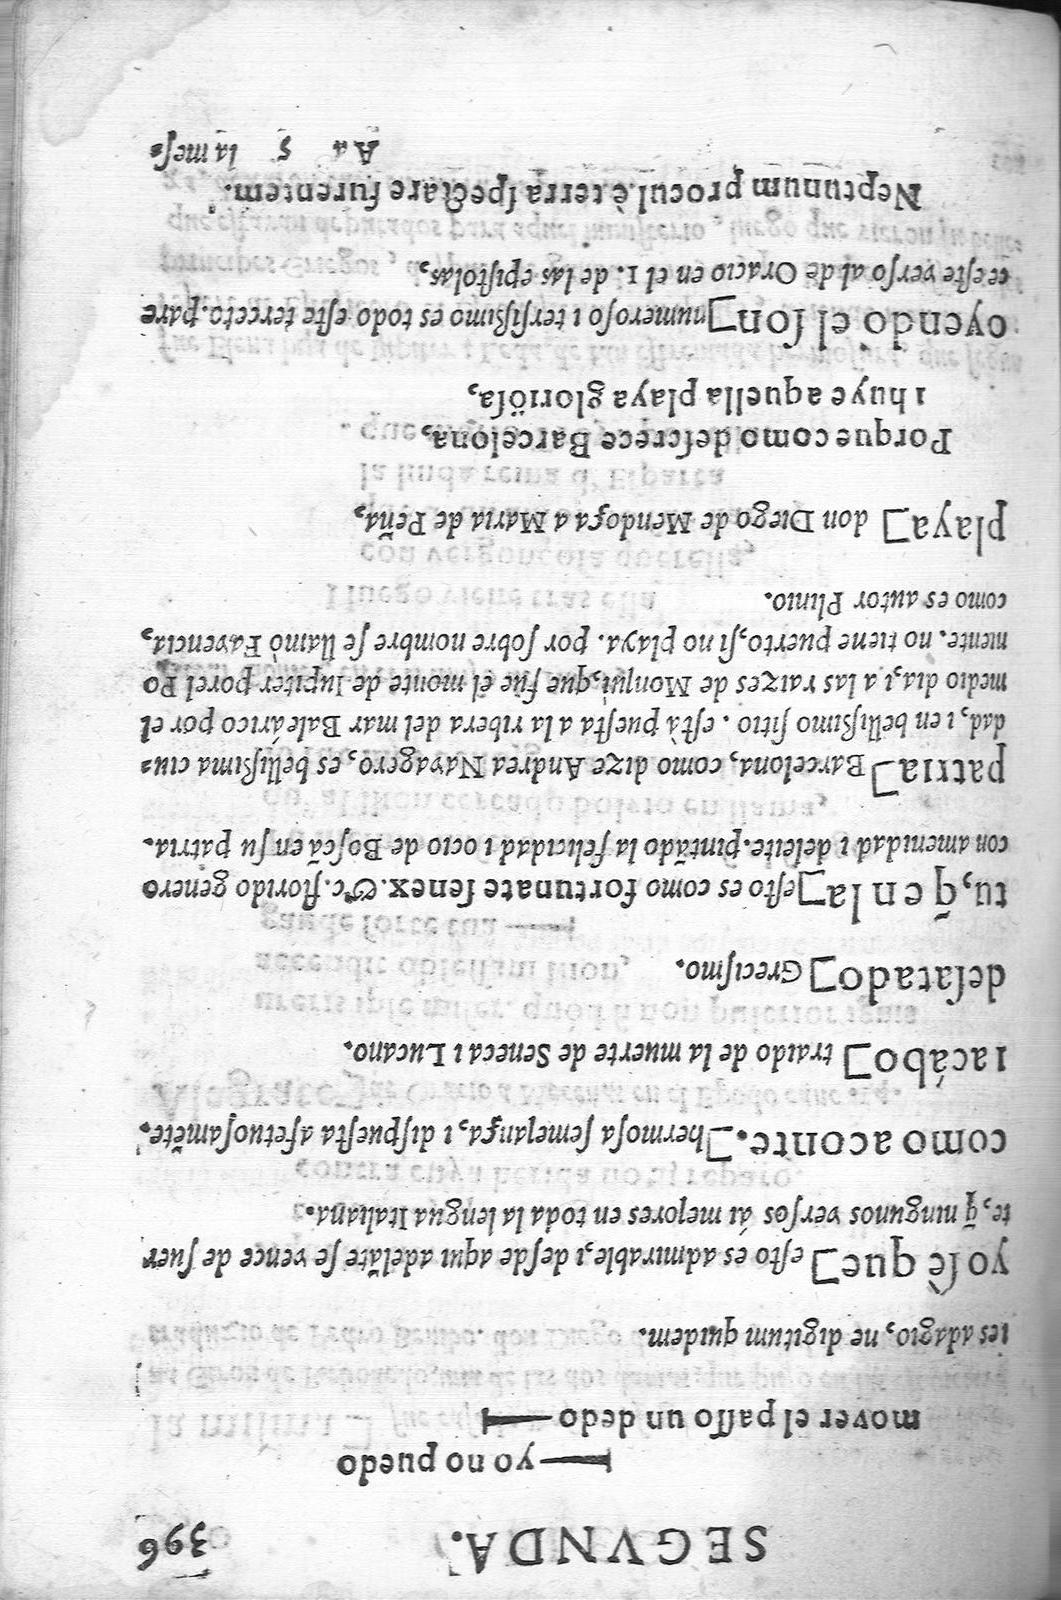 SEGVNDA. 396
yo no puedo
mover el passo un dedo
ies adagio, ne digitum quidem.
yo sè que] esto es admirable, i desde aqui adelãte se vence de suer
te, q̃ ningunos versos ái mejores en toda la lengua Italiana.
como aconte.] hermosa semejança, i dispuesta afetuosamẽte.
iacábo] traido de la muerte de Seneca i Lucano.
desatado] Grecismo.
tu, q̃ en la] esto es como fortunate senex. &c. florido genero
con amenidad i deleite. pintãdo la felicidad i ocio de Boscã en su patria.
patria] Barcelona, como dize Andrea Navagero, es bellissima ciu-
dad, i en bellissimo sitio. està puesta a la ribera del mar Baleárico por el
medio dia, i a las raizes de Monjui, que fue el monte de Iupiter por el Po
niente. no tiene puerto, si no playa. por sobre nombre se llamò Favencia,
como es autor Plinio.
playa] don Diego de Mendoça a Maria de Peña,
Porque como descrece Barcelona,
i huye aquella playa gloriösa,
oyendo el son] numeroso i tersissimo es todo este terceto. pare
ce este verso al de Oracio en el 1. de las epistolas,
Neptunum procul è terra spectare furentem.
Aa 5 la mes-